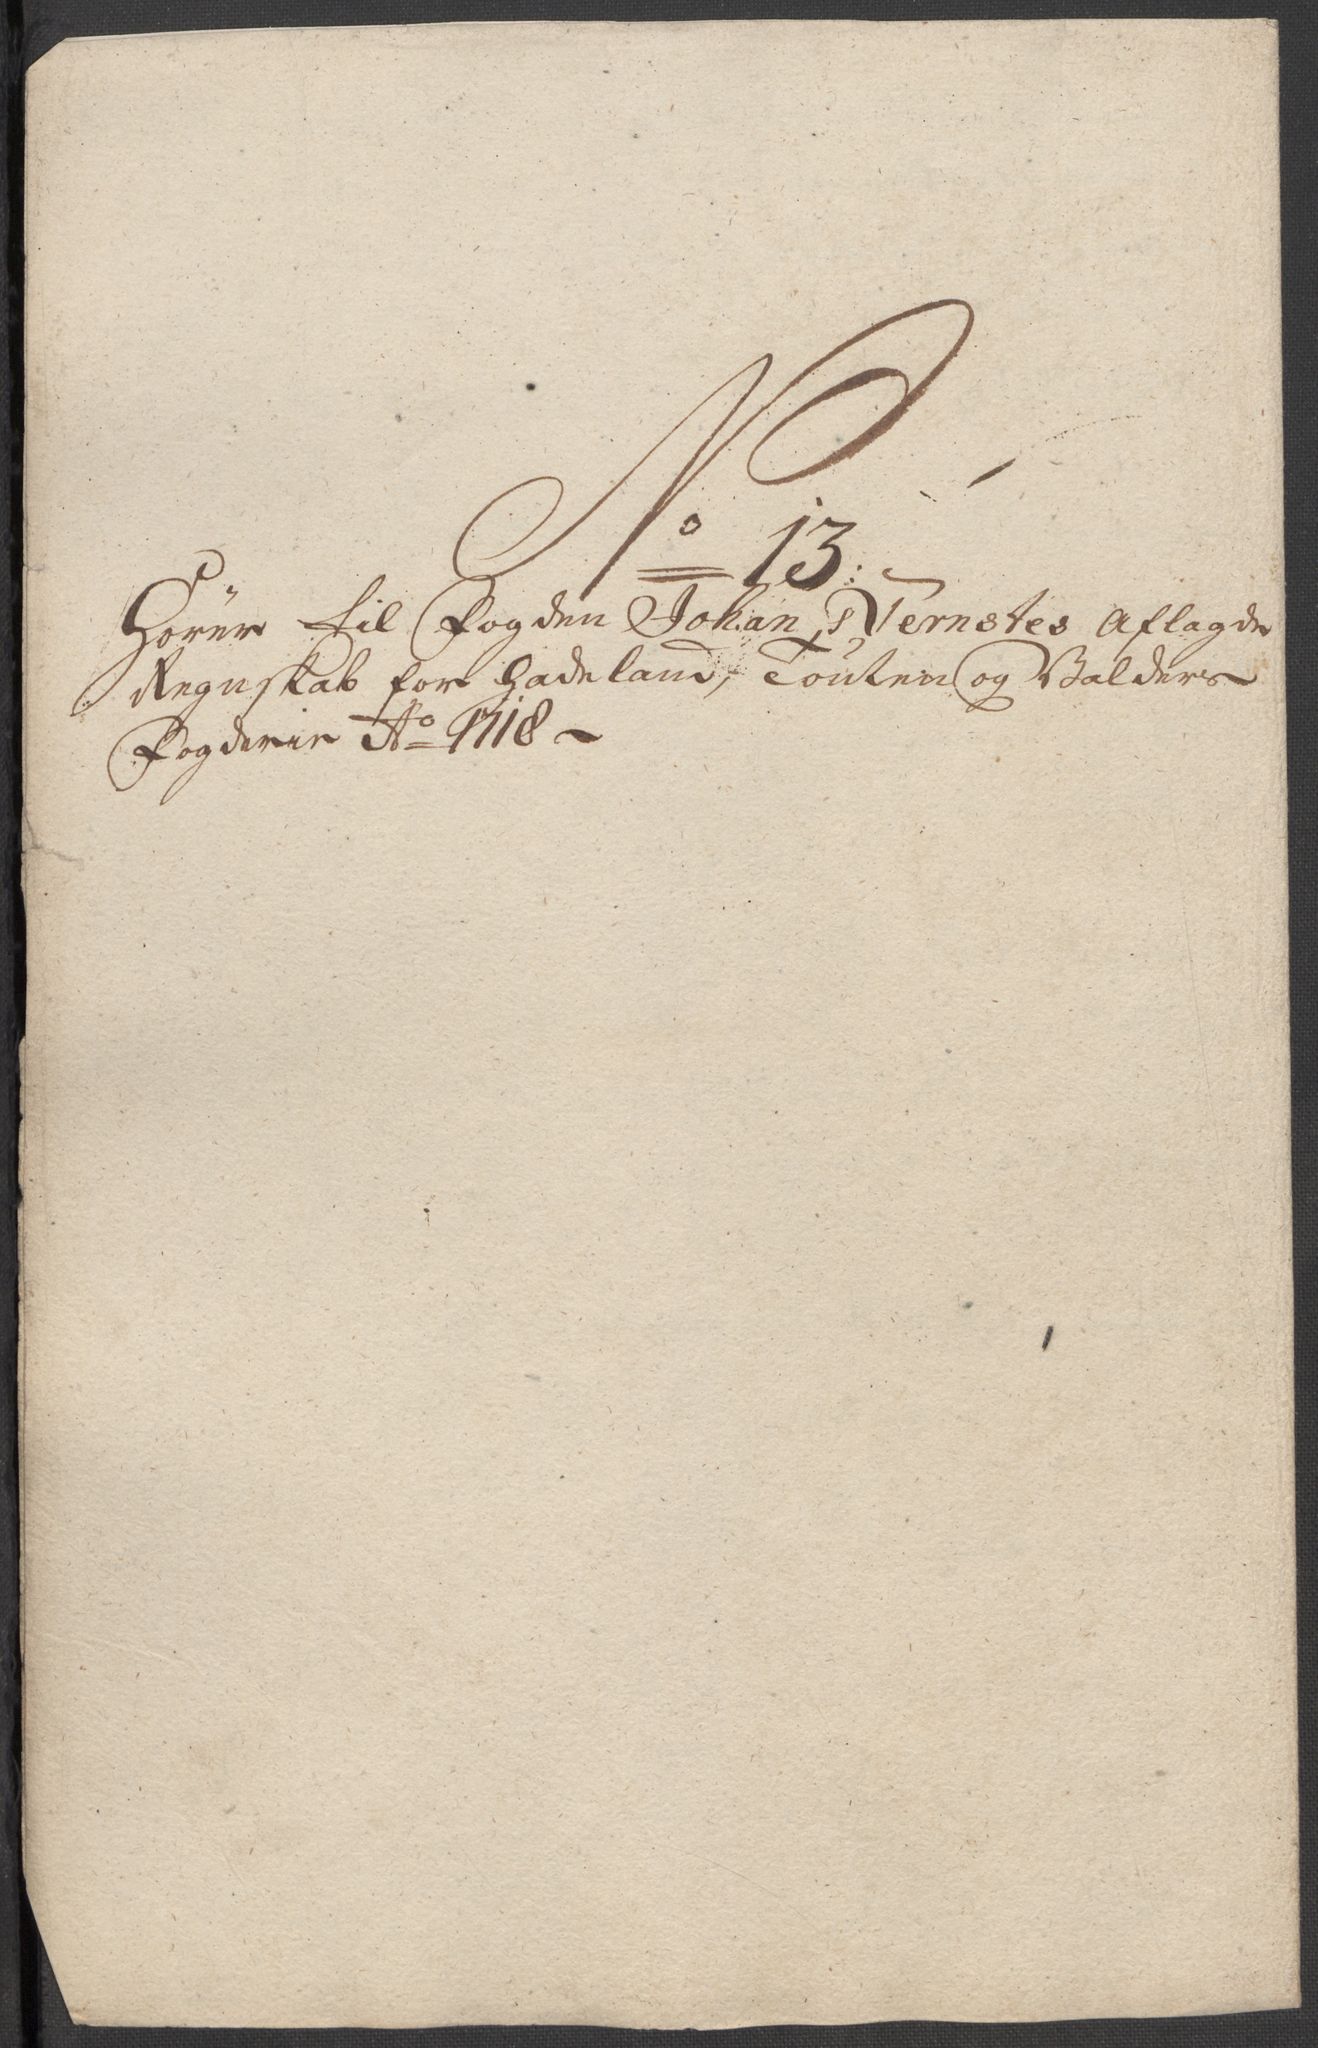 No 13:
Hører til Fogden Johan Ternstes Aflagde
Regnskab for Hadeland, Touten og Balders
Fogderie Ao 1718